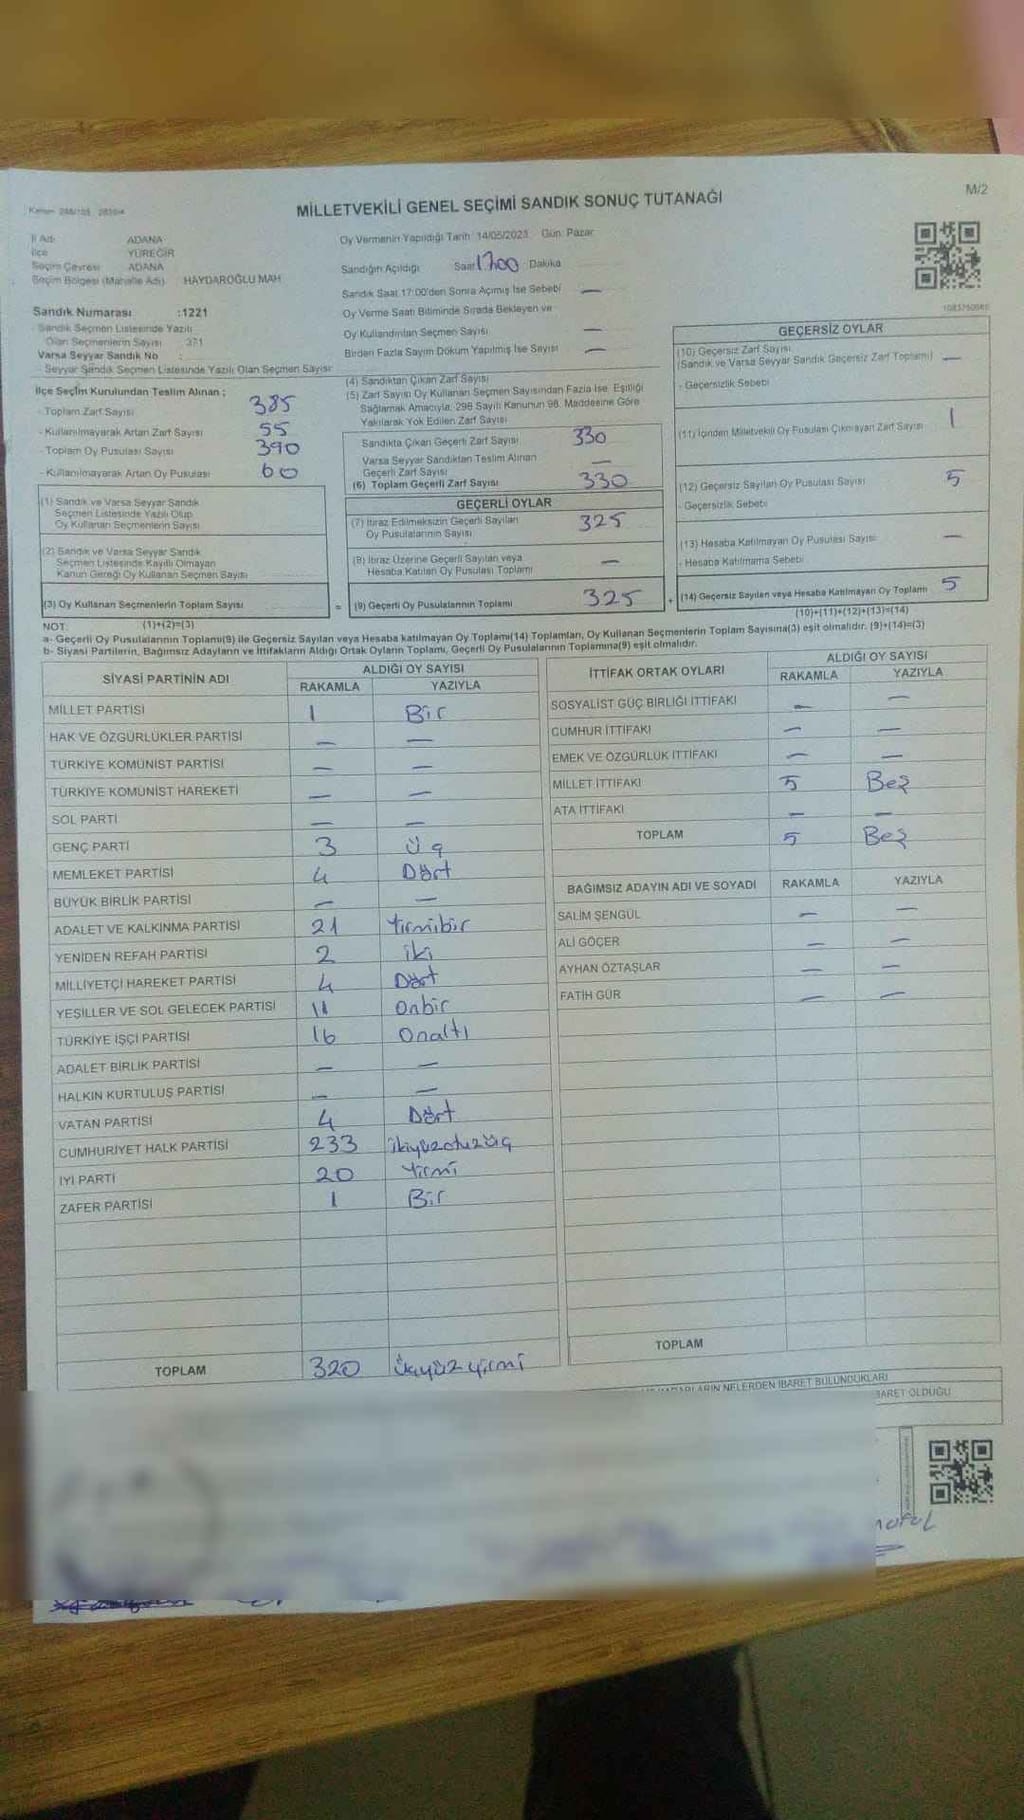 MİLLETVEKİLİ GENEL SEÇİMİ SANDIK SONUÇ TUTANAĞI
M/2
İl Adı ADANA
İlçe YÜREĞİR
Seçim Çevresi ADANA
Seçim Bölgesi (Mahalle Adı) HAYDAROĞLU MAH
Sandık Numarası :1221
Sandık Seçmen Listesinde Yazılı
Olan Seçmenlerin Sayısı 371
Varsa Seyyar Sandık No :
Seyyar Sandık Seçmen Listesinde Yazılı Olan Seçmen Sayısı
İlçe Seçim Kurulundan Teslim Alınan ;
- Toplam Zarf Sayısı 385
- Kullanılmayarak Artan Zarf Sayısı 55
- Toplam Oy Pusulası Sayısı 390
- Kullanılmayarak Artan Oy Pusulası 60
(1) Sandık ve Varsa Seyyar Sandık
Seçmen Listesinde Yazılı Olup
Oy Kullanan Seçmenlerin Sayısı
(2) Sandık ve Varsa Seyyar Sandık
Seçmen Listesinde Kayıtlı Olmayan
Kanun Gereği Oy Kullanan Seçmen Sayısı
(3) Oy Kullanan Seçmenlerin Toplam Sayısı
(1)+(2)=(3)
Oy Vermenin Yapıldığı Tarih 14/05/2023 Gün: Pazar
Sandığın Açıldığı Saat 1700 Dakika
Sandık Saat 17:00'den Sonra Açılmış İse Sebebi —
Oy Verme Saati Bitiminde Sırada Bekleyen ve
Oy Kullandırılan Seçmen Sayısı —
Birden Fazla Sayım Döküm Yapılmış İse Sayısı —
(4) Sandıktan Çıkan Zarf Sayısı
(5) Zarf Sayısı Oy Kullanan Seçmen Sayısından Fazla İse, Eşitliği
Sağlamak Amacıyla, 298 Sayılı Kanunun 98. Maddesine Göre
Yakılarak Yok Edilen Zarf Sayısı
Sandıkta Çıkan Geçerli Zarf Sayısı 330
Varsa Seyyar Sandıktan Teslim Alınan
Geçerli Zarf Sayısı —
(6) Toplam Geçerli Zarf Sayısı 330
GEÇERLİ OYLAR
(7) İtiraz Edilmeksizin Geçerli Sayılan
Oy Pusulalarının Sayısı 325
(8) İtiraz Üzerine Geçerli Sayılan veya
Hesaba Katılan Oy Pusulası Toplamı —
= (9) Geçerli Oy Pusulalarının Toplamı 325
GEÇERSİZ OYLAR
(10) Geçersiz Zarf Sayısı
(Sandık ve Varsa Seyyar Sandık Geçersiz Zarf Toplamı) —
- Geçersizlik Sebebi
(11) İçinden Milletvekili Oy Pusulası Çıkmayan Zarf Sayısı 1
(12) Geçersiz Sayılan Oy Pusulası Sayısı 5
- Geçersizlik Sebebi
(13) Hesaba Katılmayan Oy Pusulası Sayısı —
- Hesaba Katılmama Sebebi
+ (14) Geçersiz Sayılan veya Hesaba Katılmayan Oy Toplamı 5
(10)+(11)+(12)+(13)=(14)
NOT:
a- Geçerli Oy Pusulalarının Toplamı(9) ile Geçersiz Sayılan veya Hesaba katılmayan Oy Toplamı(14) Toplamları, Oy Kullanan Seçmenlerin Toplam Sayısına(3) eşit olmalıdır. (9)+(14)=(3)
b- Siyasi Partilerin, Bağımsız Adayların ve İttifakların Aldığı Ortak Oyların Toplamı, Geçerli Oy Pusulalarının Toplamına(9) eşit olmalıdır.
SİYASİ PARTİNİN ADI ALDIĞI OY SAYISI
RAKAMLA YAZIYLA
MİLLET PARTİSİ 1 Bir
HAK VE ÖZGÜRLÜKLER PARTİSİ — —
TÜRKİYE KOMÜNİST PARTİSİ — —
TÜRKİYE KOMÜNİST HAREKETİ — —
SOL PARTİ — —
GENÇ PARTİ 3 Üç
MEMLEKET PARTİSİ 4 Dört
BÜYÜK BİRLİK PARTİSİ — —
ADALET VE KALKINMA PARTİSİ 21 Yirmibir
YENİDEN REFAH PARTİSİ 2 iki
MİLLİYETÇİ HAREKET PARTİSİ 4 Dört
YEŞİLLER VE SOL GELECEK PARTİSİ 11 Onbir
TÜRKİYE İŞÇİ PARTİSİ 16 Onaltı
ADALET BİRLİK PARTİSİ — —
HALKIN KURTULUŞ PARTİSİ — —
VATAN PARTİSİ 4 Dört
CUMHURİYET HALK PARTİSİ 233 ikiyüzotuzüç
İYİ PARTİ 20 Yirmi
ZAFER PARTİSİ 1 Bir
TOPLAM 320 Üçyüzyirmi
İTTİFAK ORTAK OYLARI ALDIĞI OY SAYISI
RAKAMLA YAZIYLA
SOSYALİST GÜÇ BİRLİĞİ İTTİFAKI — —
CUMHUR İTTİFAKI — —
EMEK VE ÖZGÜRLÜK İTTİFAKI — —
MİLLET İTTİFAKI 5 Beş
ATA İTTİFAKI — —
TOPLAM 5 Beş
BAĞIMSIZ ADAYIN ADI VE SOYADI RAKAMLA YAZIYLA
SALİM ŞENGÜL — —
ALİ GÖÇER — —
AYHAN ÖZTAŞLAR — —
FATİH GÜR — —
TOPLAM
NELERDEN İBARET BULUNDUKLARI
OLDUĞU